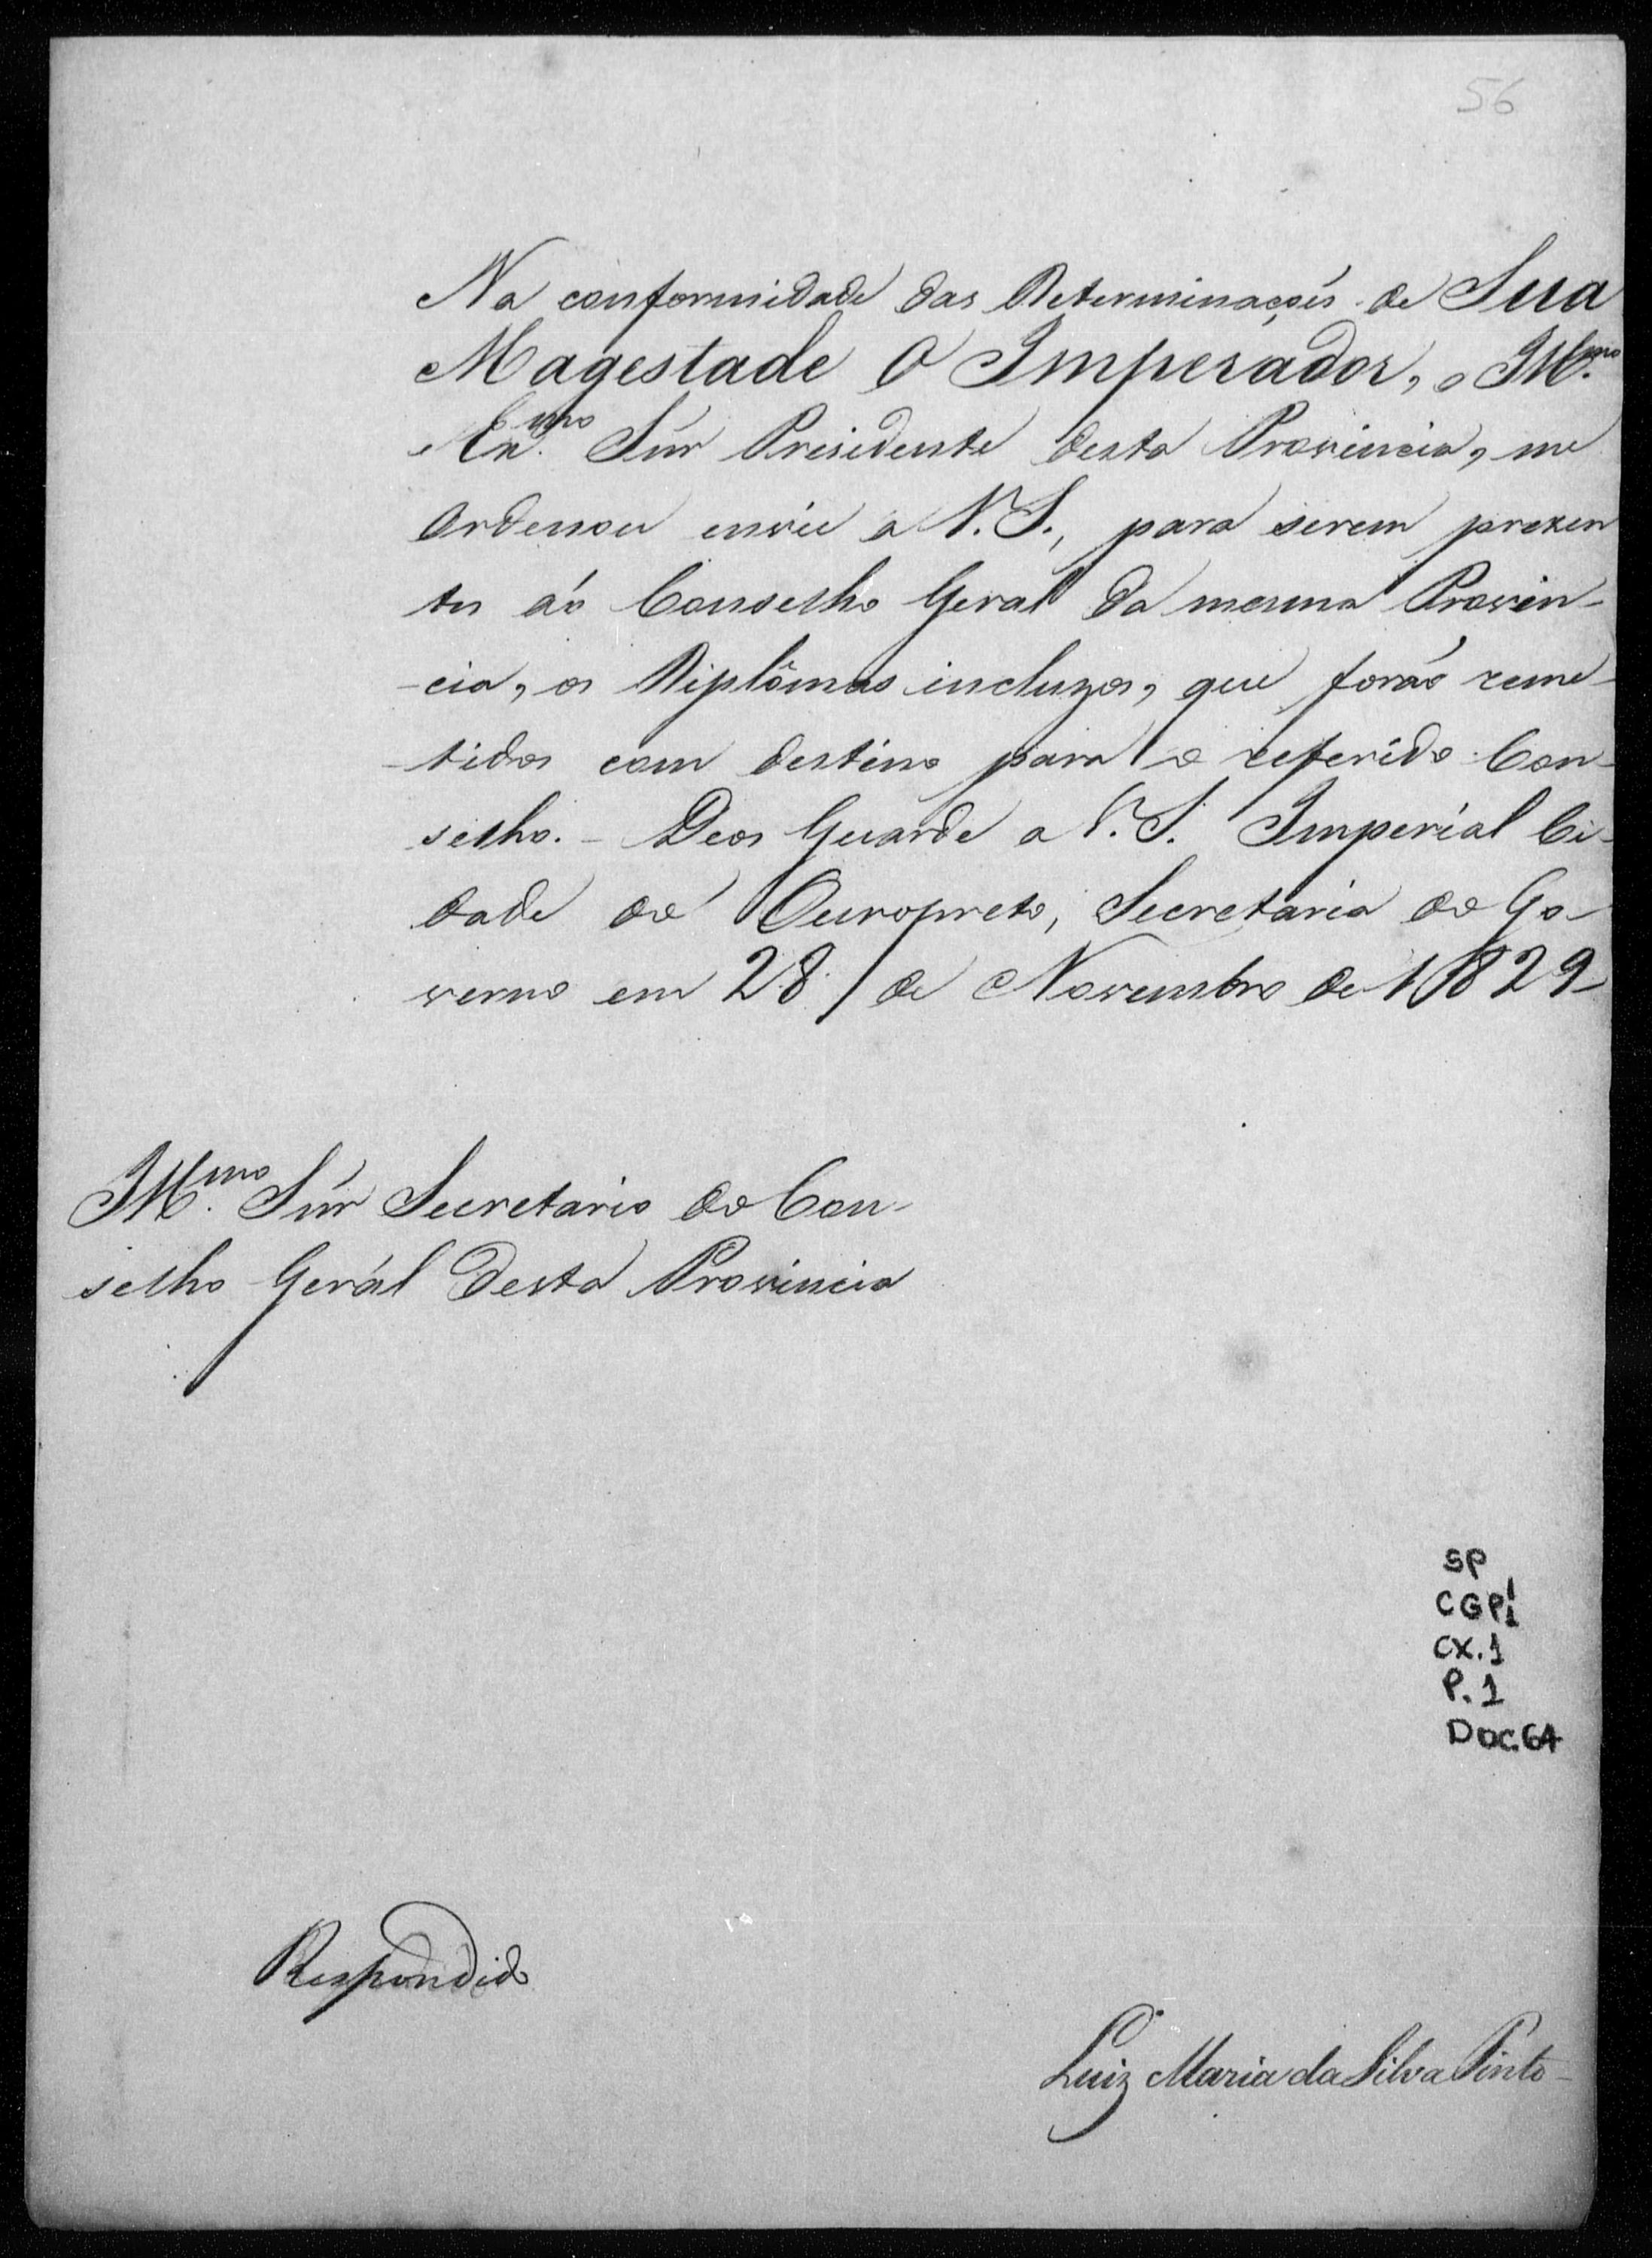 56
Na conformidade das Determinaçoẽs de Sua
Magestade O Imperador, o Ill.mo
e Ex.mo Sñr Presidente desta Provincia, me
Ordenou envie a V.S., para serem prezen
tes áo Conselho Geral da mesma Provin-
-cia, os Diplômas incluzos, que forão reme-
-tidos com destino para o referido Con-
selho. - Deos Guarde a V.S. Imperial Ci-
dade do Ouropreto, Secretaria do Go-
verno em 28 / de Novembro de 1829-
Ill.mo Sñr Secretario do Con-
selho Gerál desta Provincia
SP
CGP1
CX.1
P.1
Doc.64
Respondido
Luiz Maria da Silva Pinto-